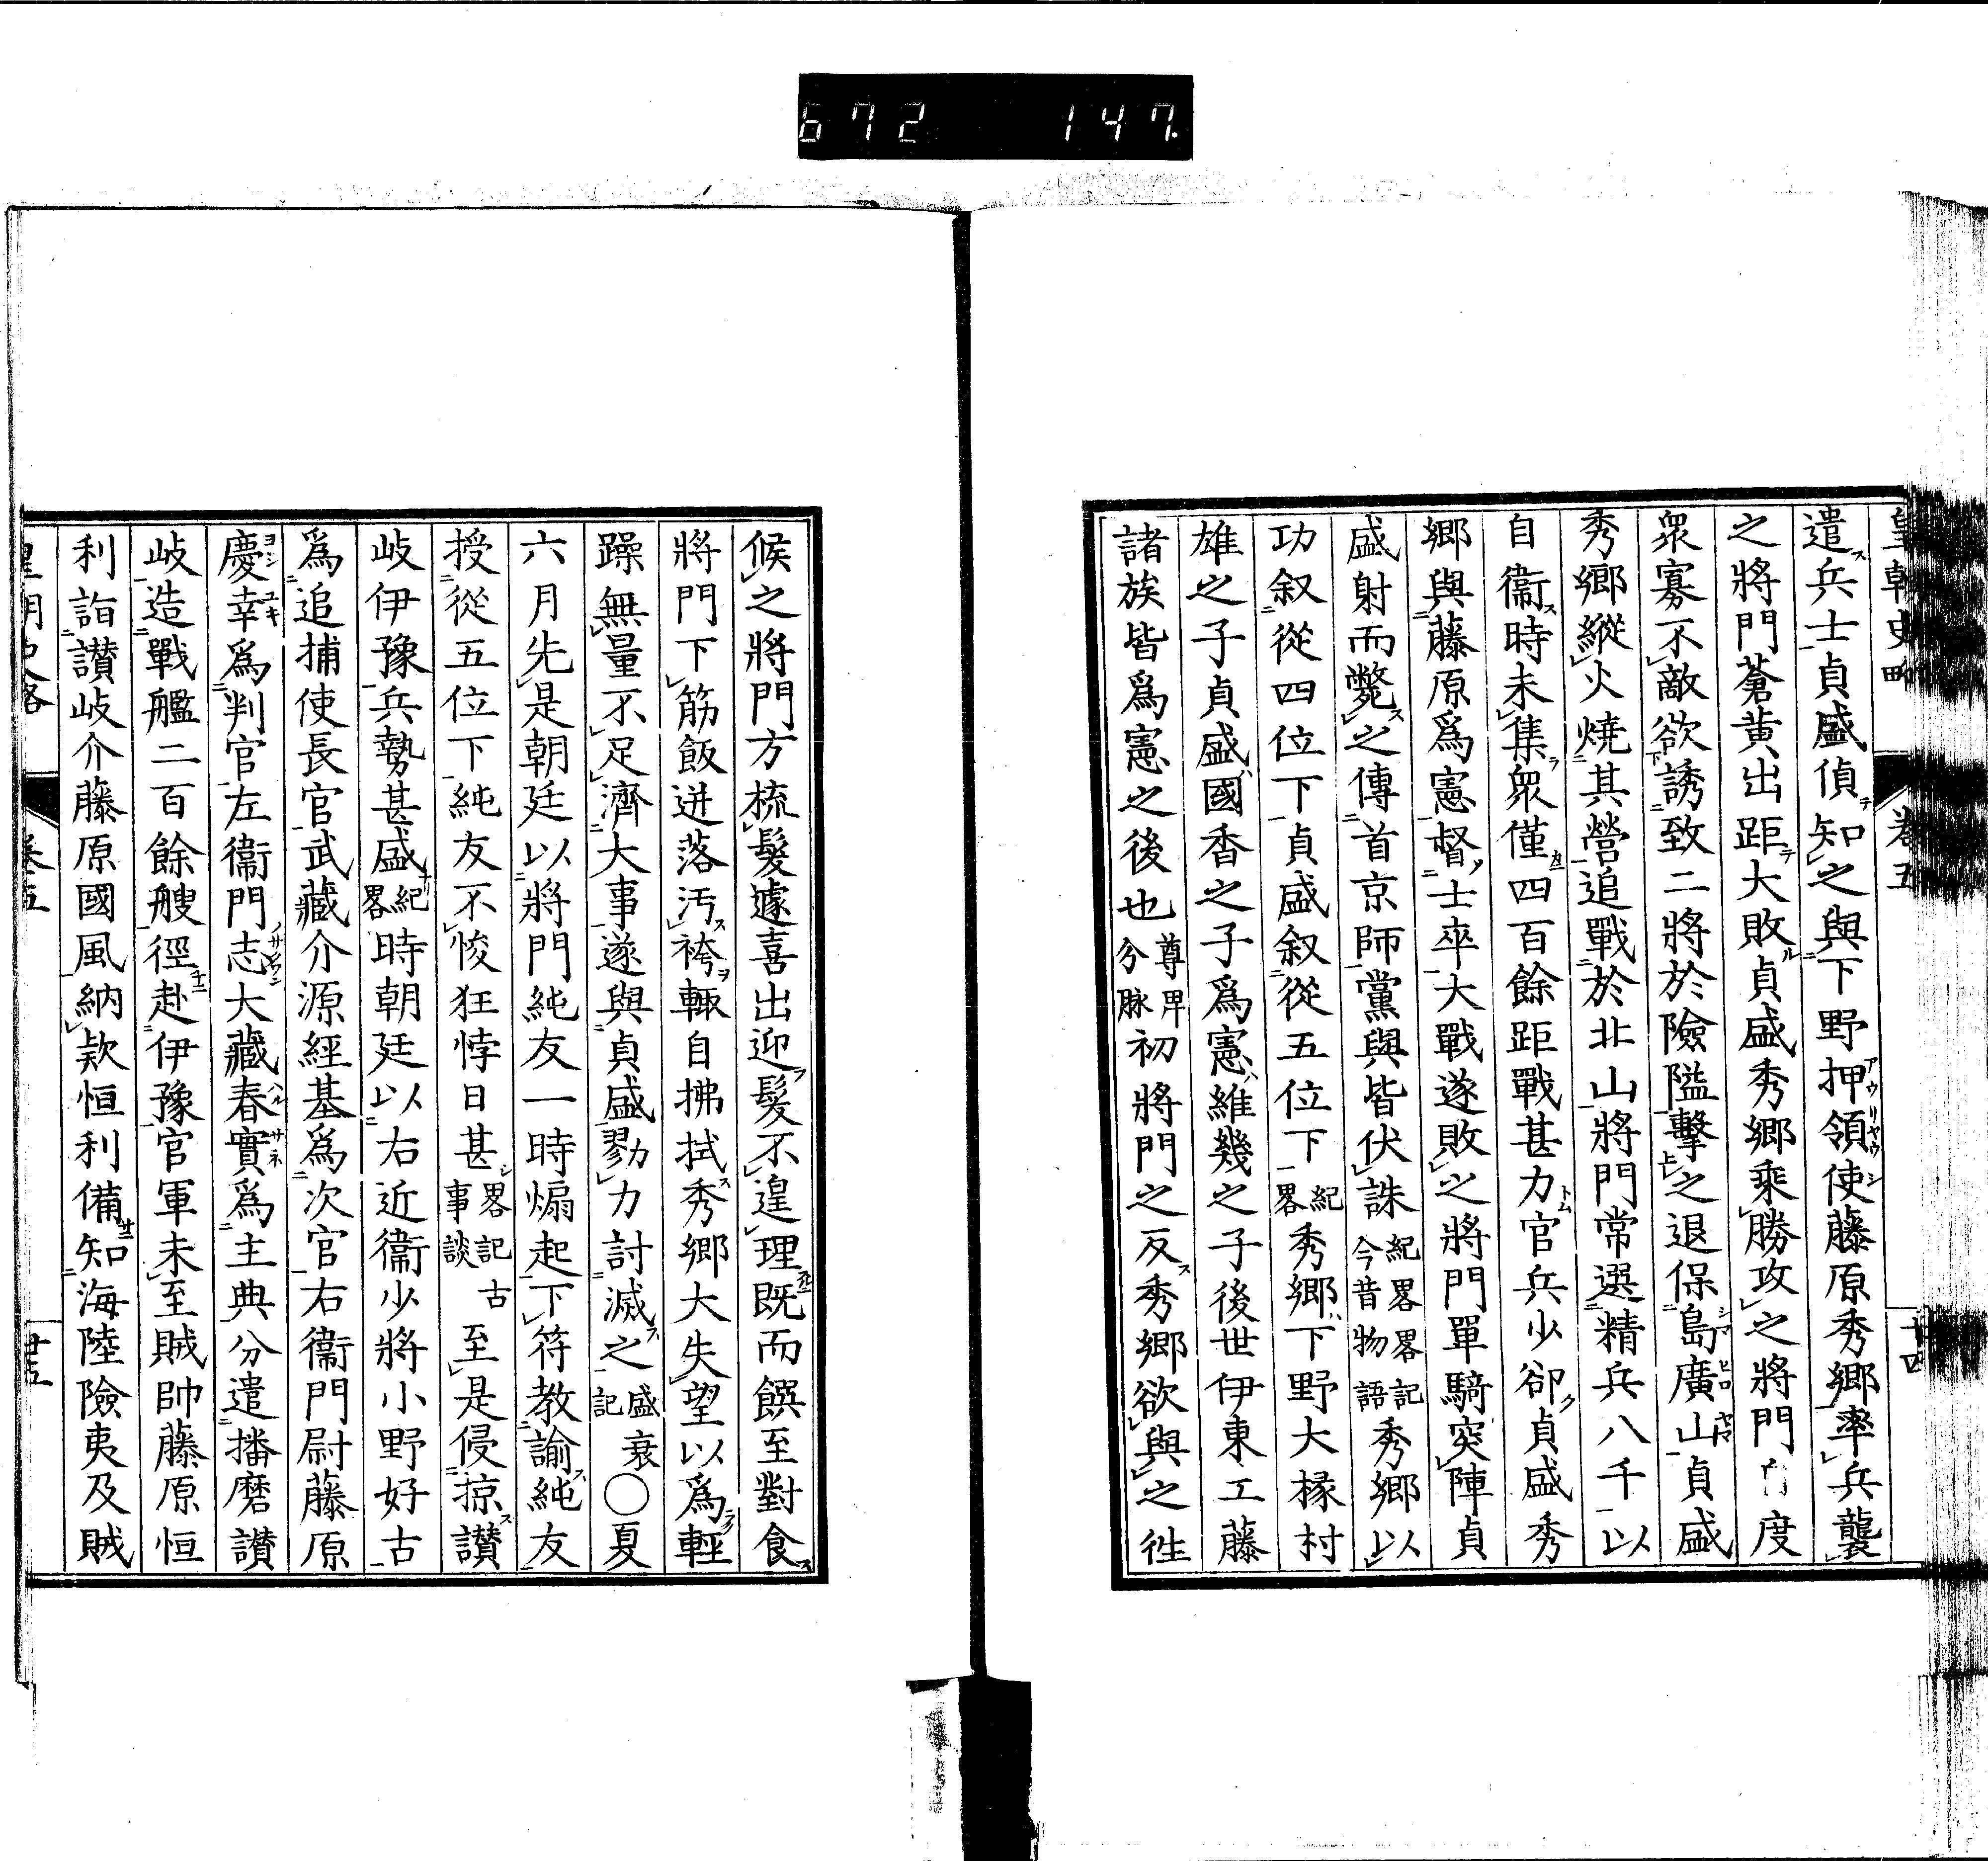 672 147.
皇朝史略 卷五
遣兵士貞盛偵知之與下野押領使藤原秀鄉率兵襲
之將門蒼黄出距大敗貞盛秀鄉乘勝攻之將門自度
衆寡不敵欲誘致二將於險隘擊之退保島廣山貞盛
秀鄉縱火燒其營追戰於北山將門常選精兵八千以
自衞時未集衆僅四百餘距戰甚力官兵少卻貞盛秀
鄉與藤原爲憲督士卒大戰遂敗之將門單騎突陣貞
盛射而斃之傳首京師黨與皆伏誅紀畧畧記今昔物語秀鄉以
功叙從四位下貞盛叙從五位下紀畧秀鄉下野大椽村
雄之子貞盛國香之子爲憲維幾之子後世伊東工藤
諸族皆爲憲之後也尊卑分脉初將門之反秀鄉欲與之徃
候之將門方梳髮遽喜出迎髮不遑理既而饌至對食
將門下筋飯迸落汚袴輙自拂拭秀鄉大失望以爲輕
躁無量不足濟大事遂與貞盛勠力討滅之盛衰記○夏
六月先是朝廷以將門純友一時煽起下符教諭純友
授從五位下純友不悛狂悖日甚畧記古事談至是侵掠讃
岐伊豫兵勢甚盛紀畧時朝廷以右近衞少將小野好古
爲追捕使長官武藏介源經基爲次官右衞門尉藤原
慶幸爲判官左衞門志大藏春實爲主典分遣播磨讃
岐造戰艦二百餘艘徑赴伊豫官軍未至賊帥藤原恒
利詣讃岐介藤原國風納欵恒利備知海陸險夷及賊
皇朝史略 卷五 廿五